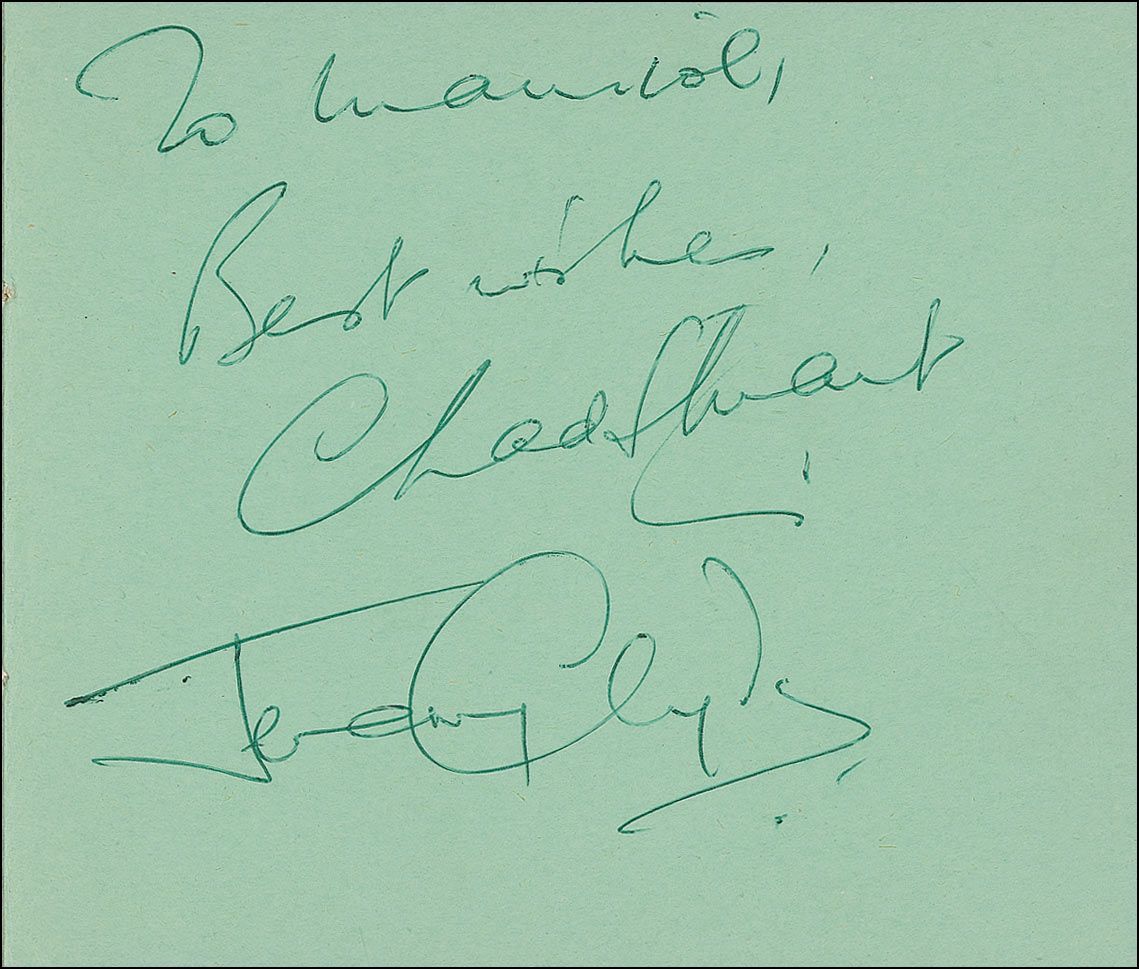 To
Best wishes,
Chad Stuart
Jeremy Clyde